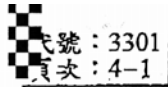 代號：3301
頁次：4-1